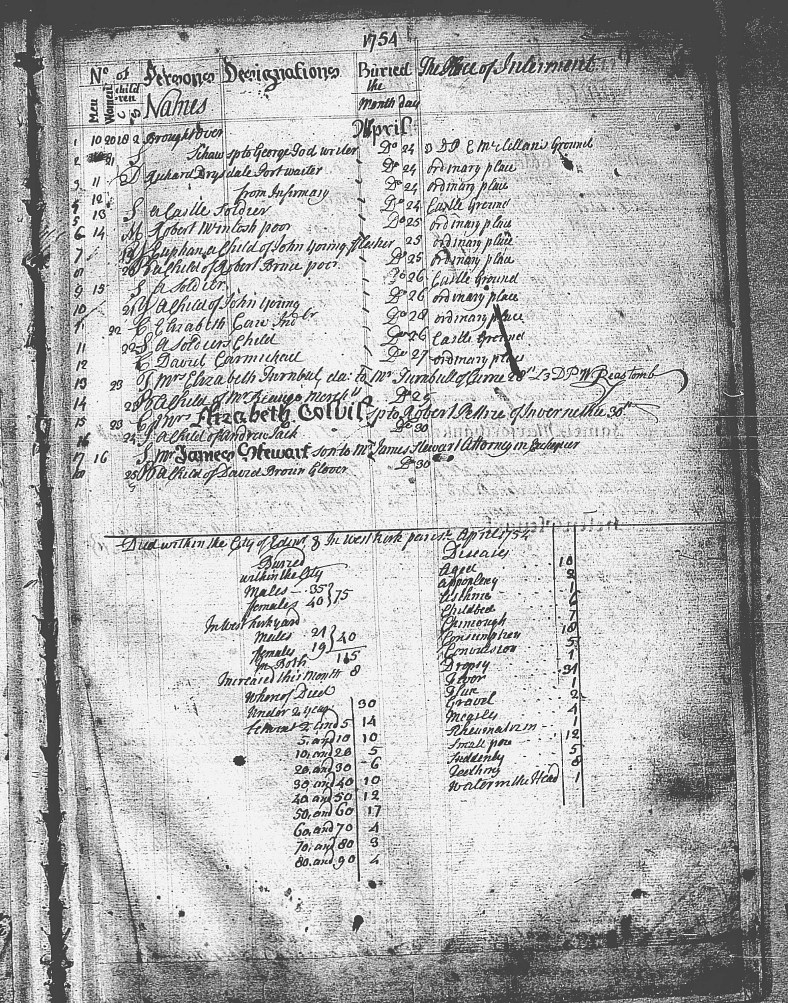 1754
No of Persons Designations Buried The Place of Interment
Men Women Child ren Names the Month day
April
1 10 20 18 2 Brought over
2 Schaw sp to George Tod writer Do 24 3 DP E McLellans Ground
3 11 Drysdale Port waiter Do 24 ordinary place
4 12 from Infirmary Do 24 ordinary place
5 13 S a Castle Soldier Do 24 Castle Ground
6 14 M Robert McIntosh poor Do 25 ordinary place
7 19 a Child of John Young flesher 25 ordinary place
8 20 a Child of Robert Bruce poor Do 25 ordinary place
9 15 S a Soldier Do 26 Castle Ground
10 21 Y a Child of John Young Do 26 ordinary place
22 C Elizabeth Caw Do 28 ordinary place
11 22 S a Soldiers Child Do 26 Castle Ground
12 C David Carmichael Do 27 ordinary place
13 23 T Mrs Elizabeth Turnbul da: to Mr Turnbull of Currie 28 L3 DP W
14 a Child of Mr Merch Do 29
15 23 C Mrs Elizabeth Colvil sp to Robert of Invernethie 30
16 24 J a Child of Andrew Jack Do 30
17 16 S Mr James Stewart son to Mr James Stewart Attorney in Exchequer
18 25 B a Child of David Broun Glover Do 30
Died within the City of Edinr & In West kirk parish April 1754
Buried
within the City
Males - 35
females 40 } 75
In West kirkyard
Males 21
females 19 } 40
In Both 115
Increased this Month 8
Whereof Died
Under 2 years 30
betwixt 2 and 5 14
5, and 10 10
10, and 20 5
20, and 30 6
30 and 40 10
40 and 50 12
50, and 60 17
60, and 70 4
70, and 80 3
80, and 90 4
Diseases
Aged 10
Appoplexy 2
Asthma 1
Childbed 6
Chinnough 7
Consumption 18
Convulsion 5
Dropsy 1
Fever 31
Flux 1
Gravel 2
Measles 4
Rheumatism 1
Small pox 12
Suddenly 5
Teething 8
Water in the Head 1